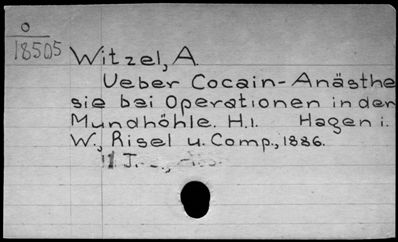 O
18505
Witzel, A.
Ueber Cocain-Anästhe
sie bei Operationen in der
Mundhöhle. H.1. Hagen i.
W., Risel u. Comp., 1886.